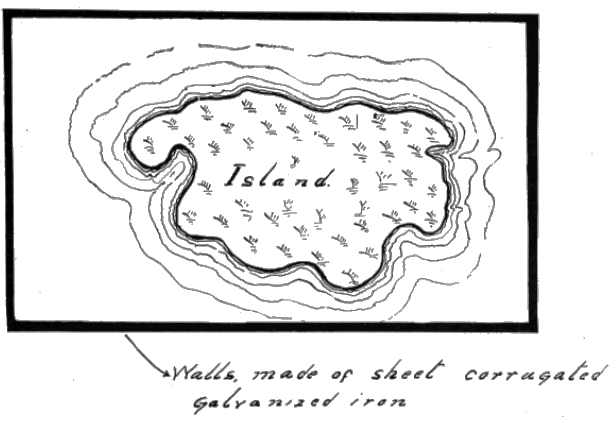 Island.
Walls, made of sheet corrugated
galvanized iron